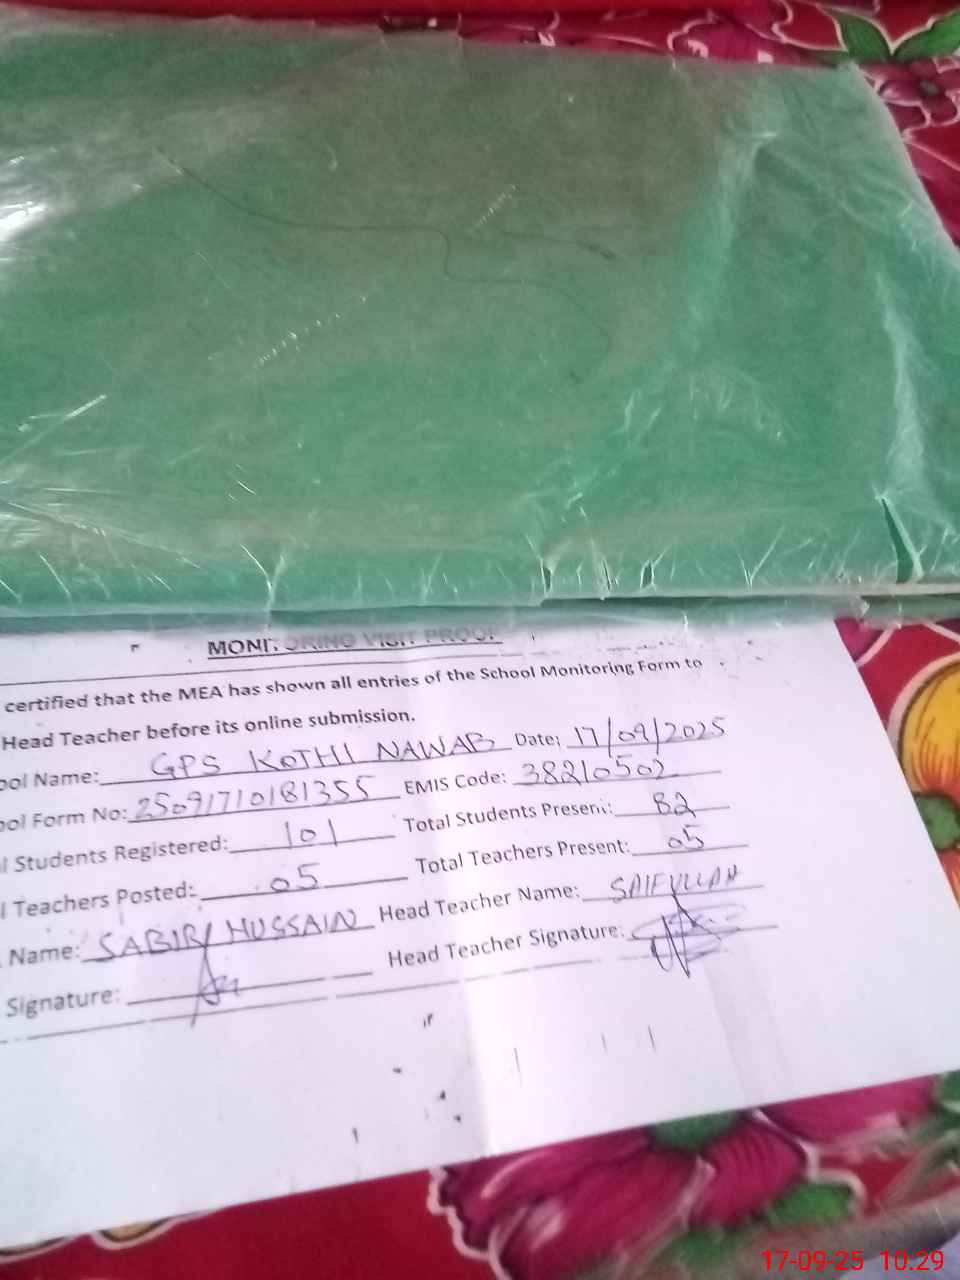 MONITORING VISIT PROOF
certified that the MEA has shown all entries of the School Monitoring Form to
Head Teacher before its online submission.
ool Name: GPS KOTHI NAWAB Date: 17/09/2025
ool Form No: 25091710181355 EMIS Code: 38210502
l Students Registered: 101 Total Students Present: 82
l Teachers Posted: 05 Total Teachers Present: 05
Name: SABIR HUSSAIN Head Teacher Name: SAIFULLAH
Signature: Head Teacher Signature:
17-09-25 10:29